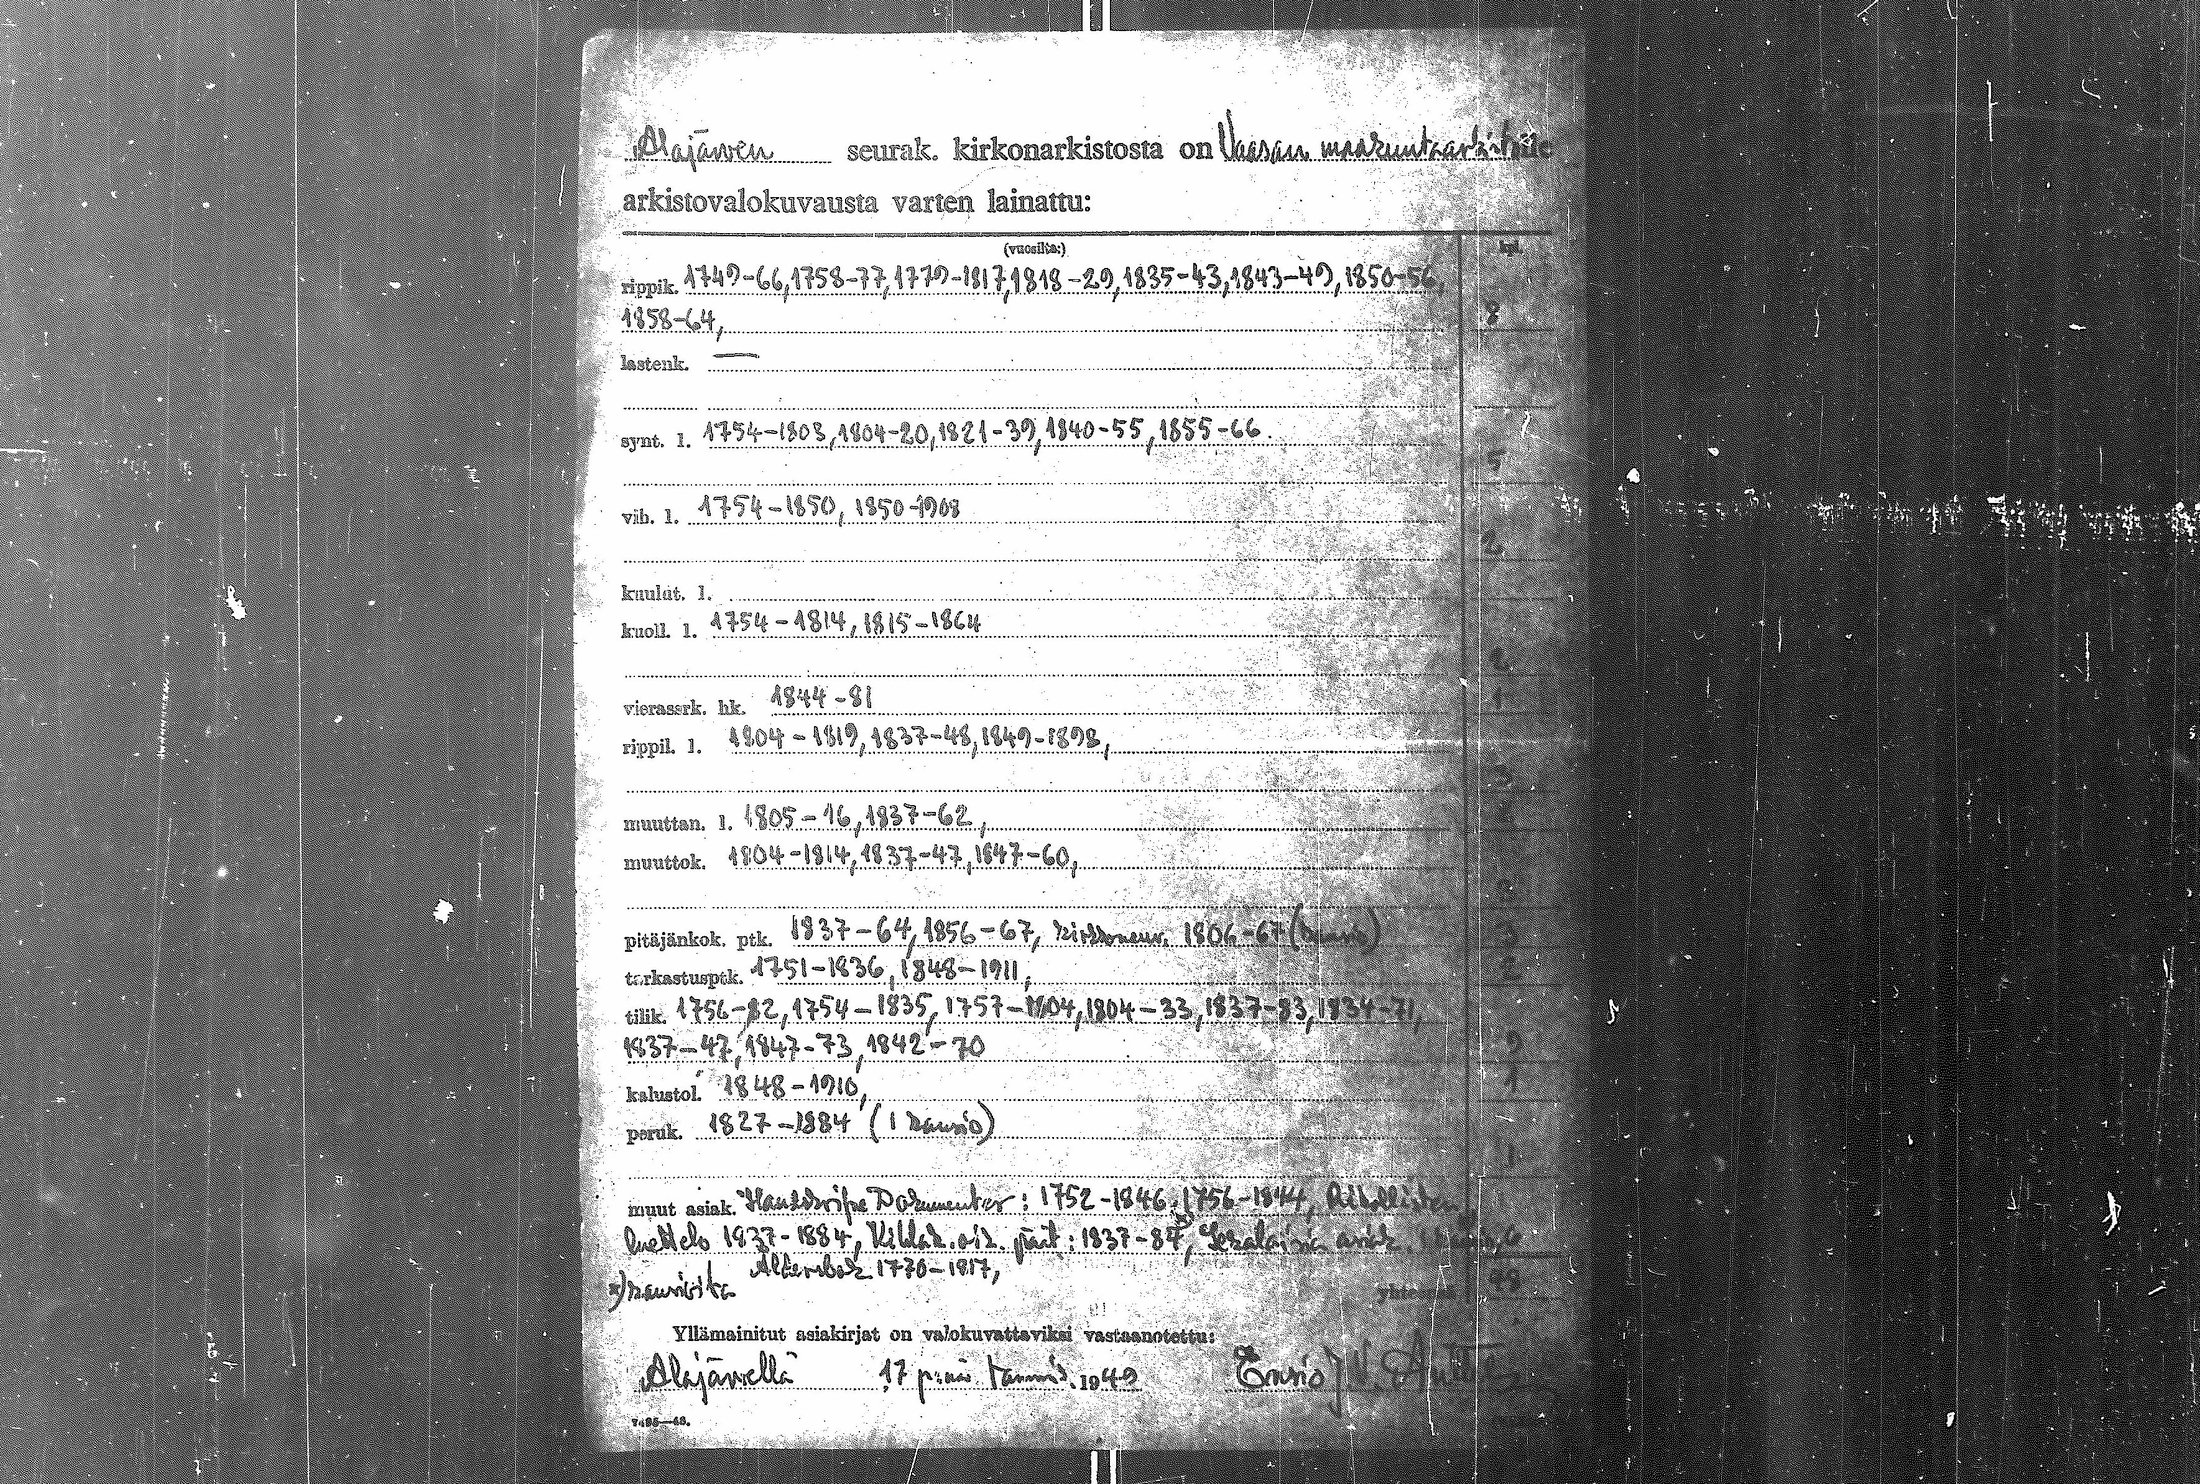 Alajärven seurak. kirkonarkistosta on Vaasan maakuntaarkistolle
arkistovalokuvausta varten lainattu:
(vuosilta:) kpl.
rippik. 1749-66, 1758-77, 1779-1817, 1818-29, 1835-43, 1843-49, 1850-56,
1858-64, 8
lastenk. —
synt. l. 1754-1803, 1804-20, 1821-39, 1840-55, 1855-66.
5
vih. l. 1754-1850, 1850-1908
2
kuulut. l.
kuoll. l. 1754-1814, 1815-1864
2
vierassrk. hk. 1844-81 1
rippil. l. 1804-1819, 1837-48, 1849-1898,
3
muuttan. l. 1805-16, 1837-62,
muuttok. 1804-1814, 1837-47, 1847-60,
pitäjänkok. ptk. 1837-64, 1856-67, kirkkoneuv. 1806-67 3
tarkastusptk. 1751-1836, 1848-1911, 2
tilik. 1756-82, 1754-1835, 1757-1804, 1804-33, 1837-83, 1834-71,
1837-47, 1847-73, 1842-70 9
kalustol. 1848-1910, 1
peruk. 1827-1884 (1 kansio)
1
muut asiak. Handskrifne Dokumenter: 1752-1846, 1756-1844, Rikollisten
luettelo 1837-1884, Kihlak. oik. päät: 1837-87, Sekalaisia asiak. 6
Altersbok 1770-1817,
*) kansioita yhteensä 48
Yllämainitut asiakirjat on valokuvattaviksi vastaanotettu:
Alajärvellä 17 p:nä tammik. 1949 Ensio
7495—48.